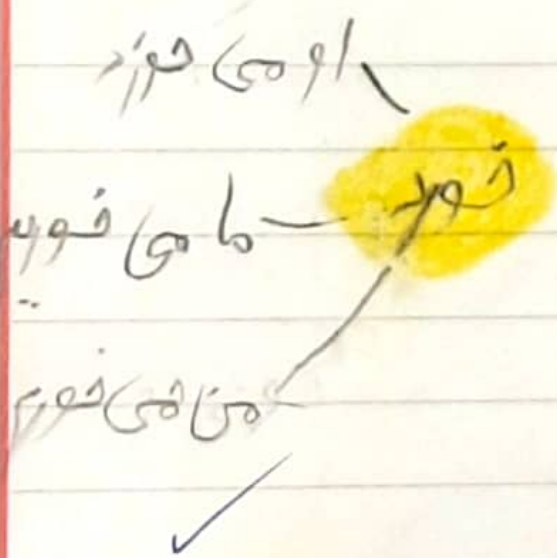 او می خورد
خورد
ما می خوریم
من می خورم